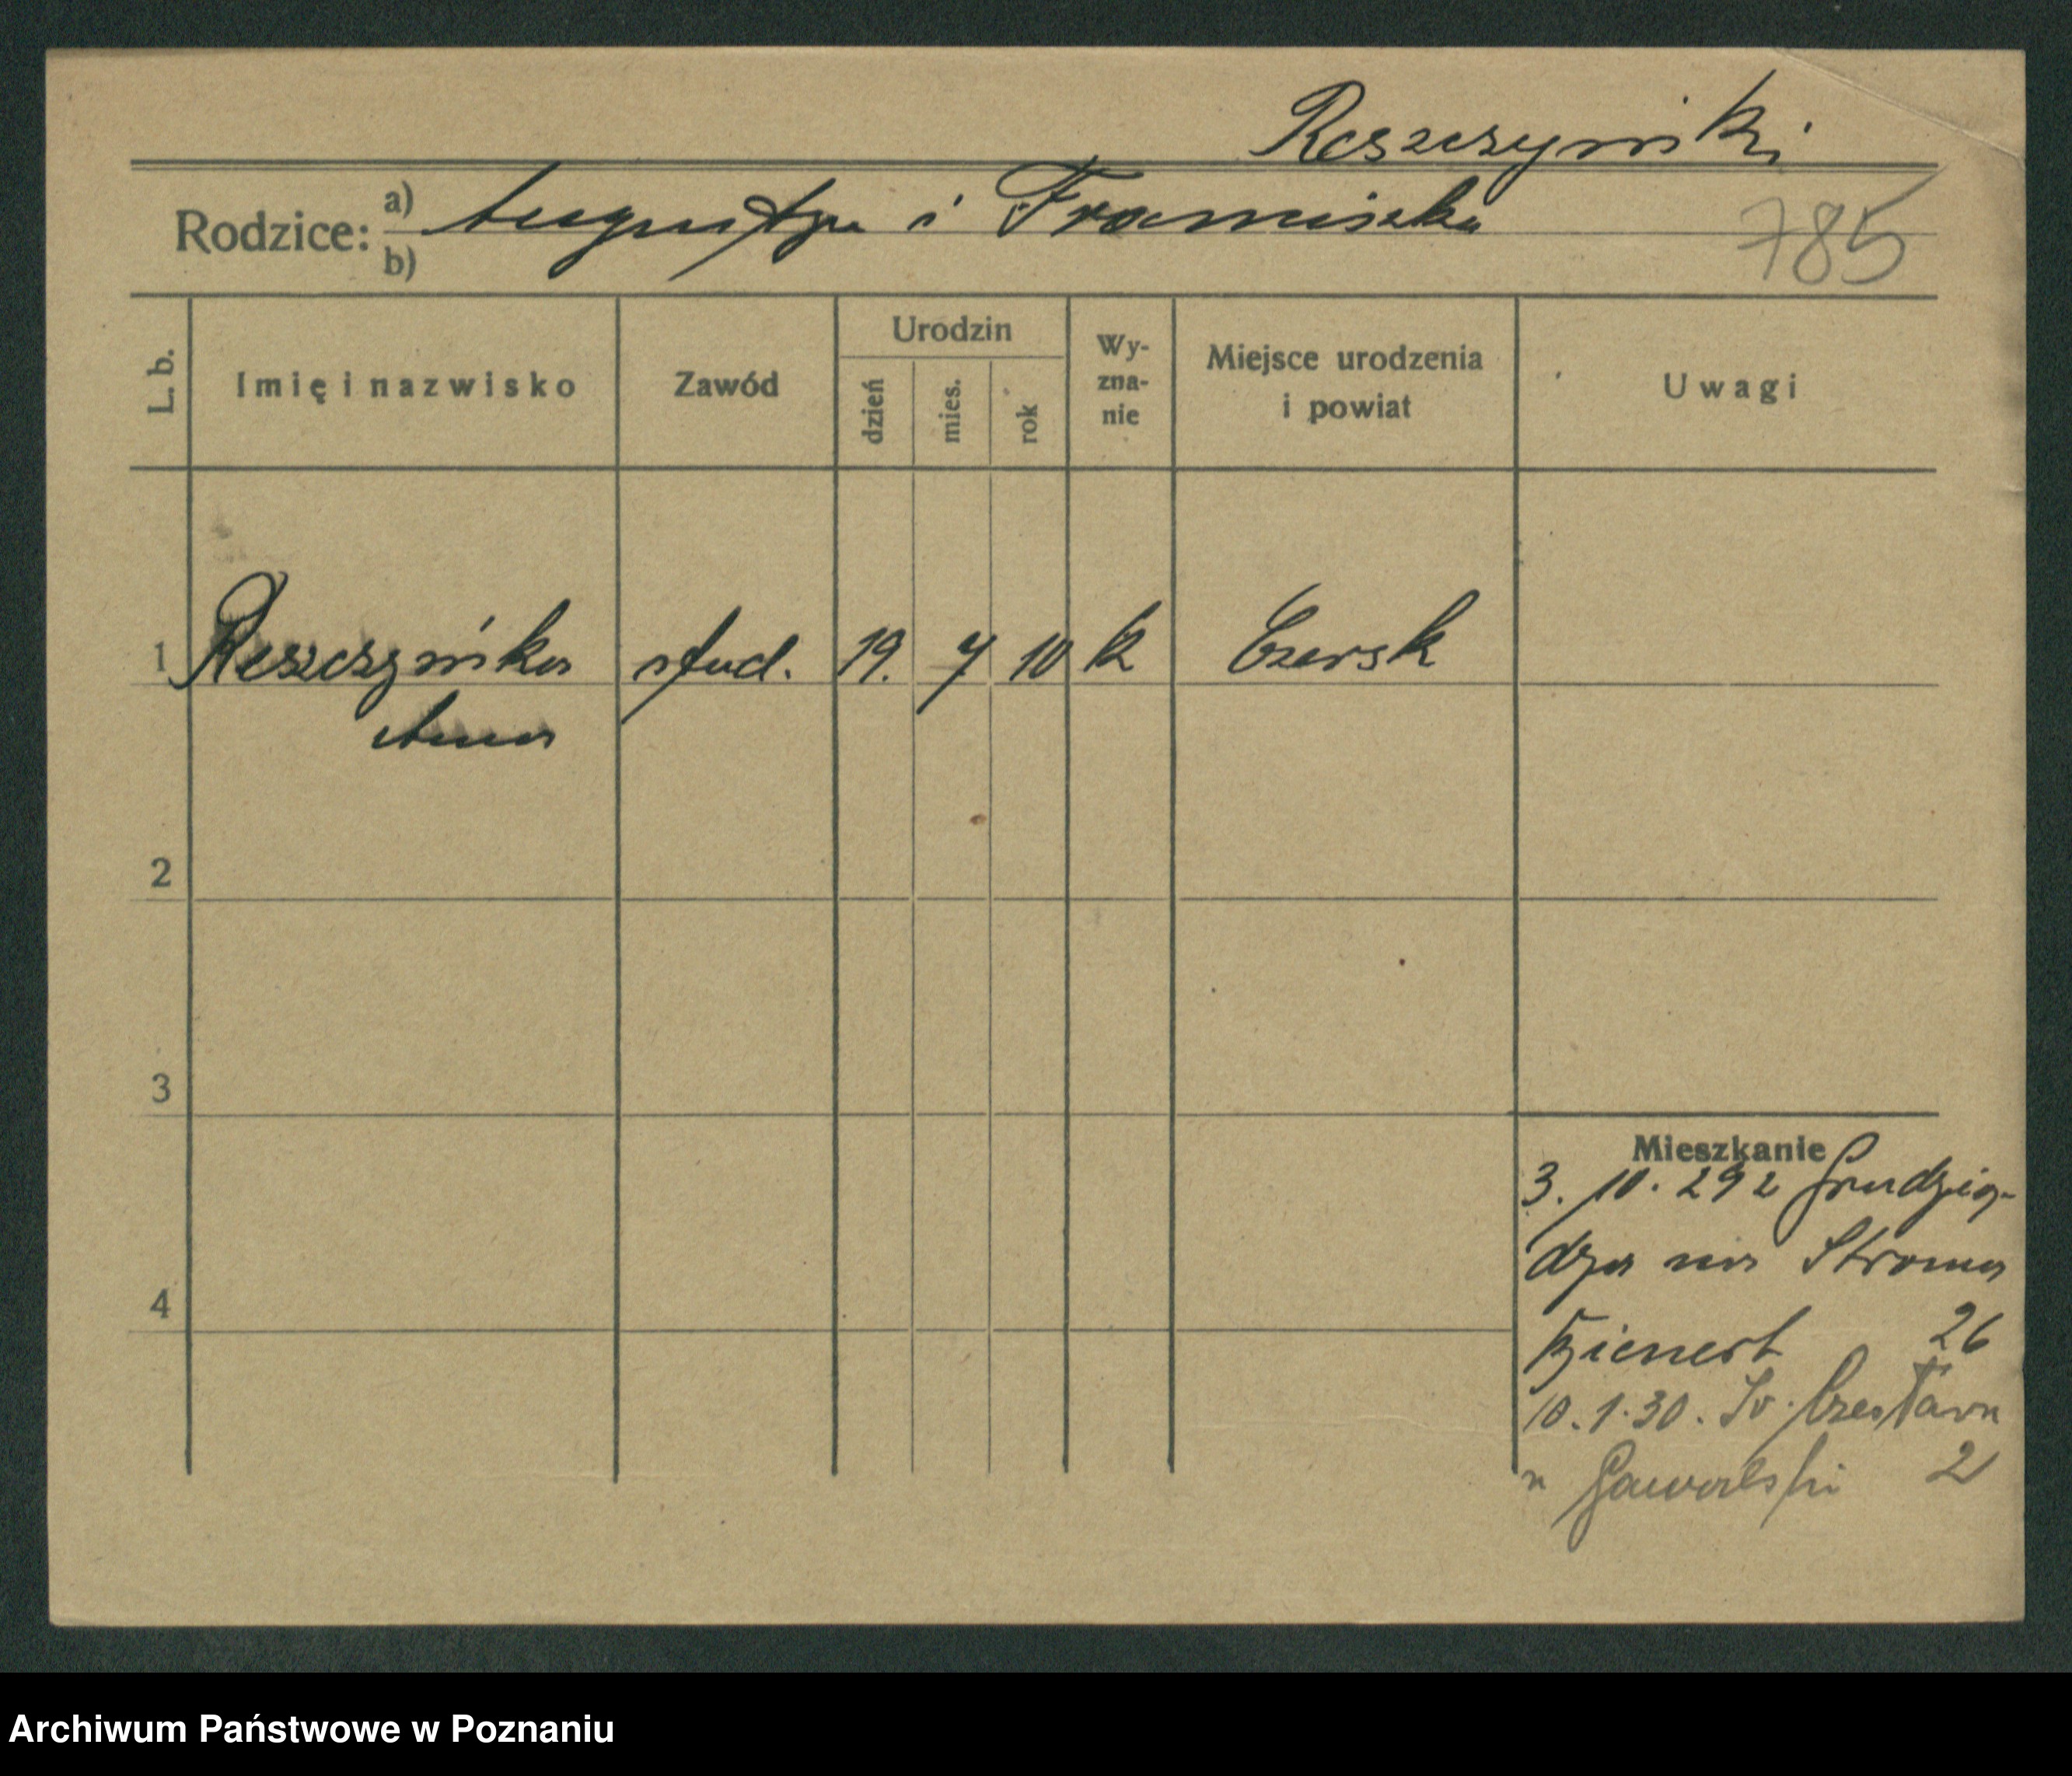 Reszczyński
Rodzice: a) Augustyn i Franciszka
b)
785
L. b. Imię i nazwisko Zawód Urodzin dzień mies. rok Wy-zna-nie Miejsce urodzenia i powiat Uwagi
1 Reszczyńska stud. 19. 7 10 k Czersk
Anna
2
3
Mieszkanie
3. 10. 29 z Grudzią-
dza na Stroma
4
26
10. 1. 30. Św. Czesława
u Gaworlski 2
Archiwum Państwowe w Poznaniu